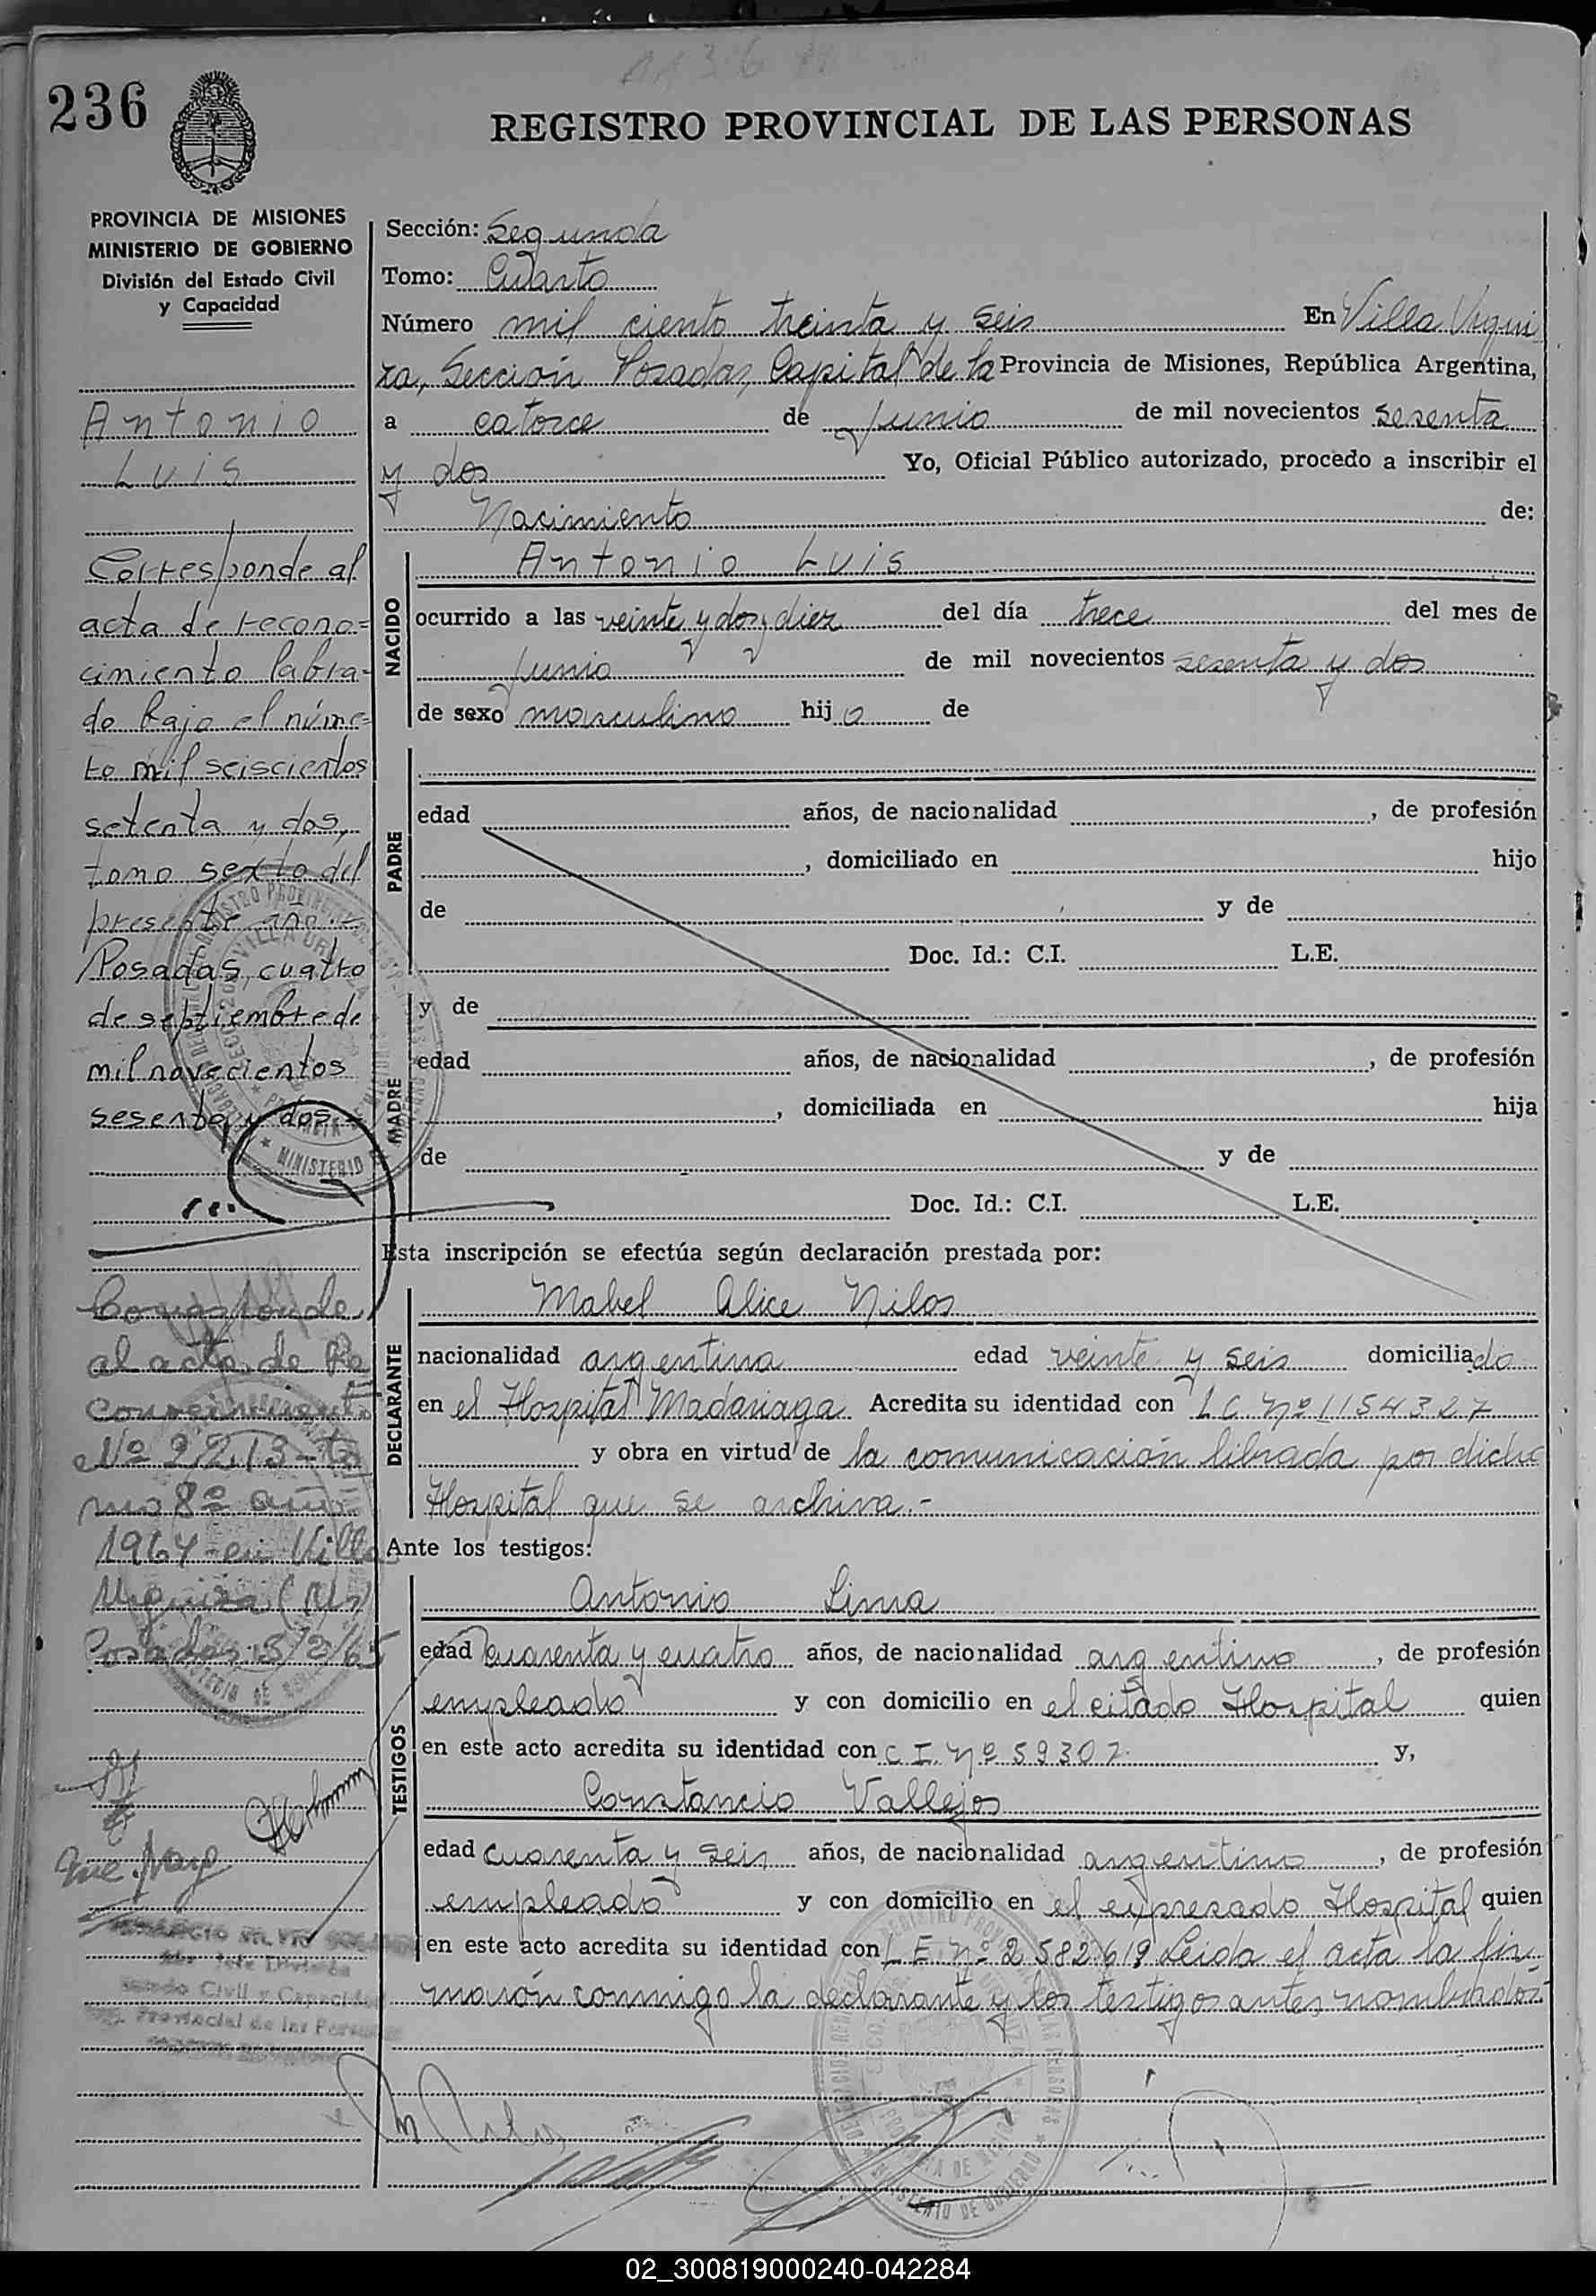 236
REGISTRO PROVINCIAL DE LAS PERSONAS
PROVINCIA DE MISIONES
MINISTERIO DE GOBIERNO
División del Estado Civil
y Capacidad
Antonio
Luis
Corresponde al
acta de recono=
cimiento labra=
do bajo el núme=
ro mil seiscientos
setenta y dos,
tomo sexto del
presente año.-
Posadas, cuatro
de septiembre de
mil novecientos
sesenta y dos.-
Corresponde
al acta de Re
conocimiento
Nº 2213 - to
mo 8º año
1964 - en Villa
Urquiza (Ms)
Posadas 15/2/65
Sección: Segunda
Tomo: Cuarto
Número mil ciento treinta y seis En Villa Urqui
za, Sección Posadas, Capital de la Provincia de Misiones, República Argentina,
a catorce de Junio de mil novecientos sesenta
y dos Yo, Oficial Público autorizado, procedo a inscribir el
Nacimiento de:
NACIDO
Antonio Luis
ocurrido a las veinte y dos y diez del día trece del mes de
Junio de mil novecientos sesenta y dos
de sexo masculino hijo de
PADRE
edad años, de nacionalidad , de profesión
, domiciliado en hijo
de y de
Doc. Id.: C.I. L.E.
MADRE
y de
edad años, de nacionalidad , de profesión
, domiciliada en hija
de y de
Doc. Id.: C.I. L.E.
Esta inscripción se efectúa según declaración prestada por:
DECLARANTE
Mabel Alice Nilos
nacionalidad argentina edad veinte y seis domiciliado
en el Hospital Madariaga Acredita su identidad con L C Nº 1154327
y obra en virtud de la comunicación librada por dicho
Hospital que se archiva.-
Ante los testigos:
TESTIGOS
Antonio Lima
edad cuarenta y cuatro años, de nacionalidad argentino, de profesión
empleado y con domicilio en el citado Hospital quien
en este acto acredita su identidad con C I. Nº 59307 y,
Constancio Vallejos
edad cuarenta y seis años, de nacionalidad argentino, de profesión
empleado y con domicilio en el expresado Hospital quien
en este acto acredita su identidad con L E Nº 2582619 Leida el acta la fir
maron conmigo la declarante y los testigos antes nombrados.
02_300819000240-042284